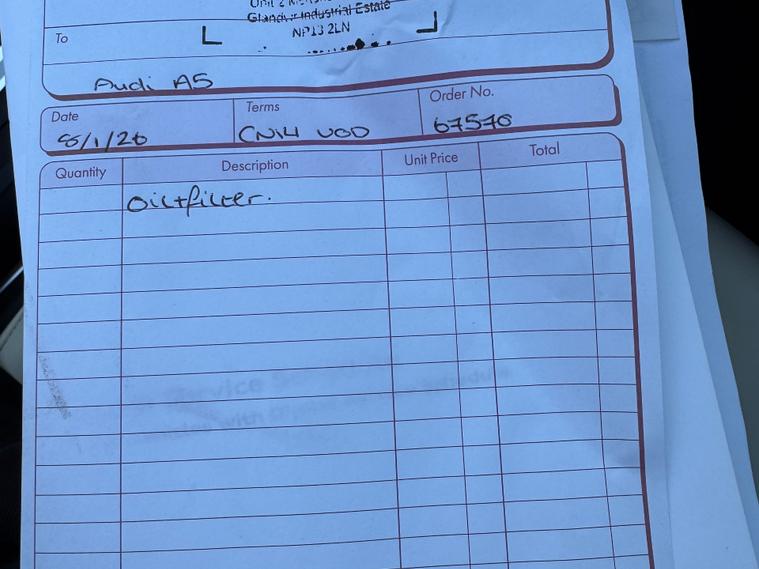 Unit 2
Glandwr Industrial Estate
NP13 2LN
To
Audi A5
Date
Terms
Order No.
8/1/26
CN14 UOD
67570
Quantity
Description
Unit Price
Total
Oil+filter.
Service